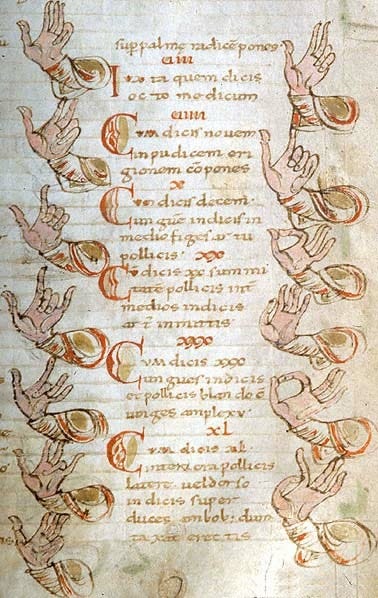 sup palmę radicē pones
uiii
I ta quem dicis
octo medicum
uiiii
Cum dicis nouem
inpudicem eri
gionem cōpones
x
Cum dicis decem
unguē indicis in
medio figes ar tu
pollicis. xx
Cū dicis xx summi
tatē pollicis int
medios indicis
ar t inmittis
xxx
Cum dicis xxx
ungues indicis
et pollicis blando c
iunges amplexu
xl
Cum dicis xl
interiora pollicis
latere ueldorso
indicis super
duces ambob; dum
taxat erectis